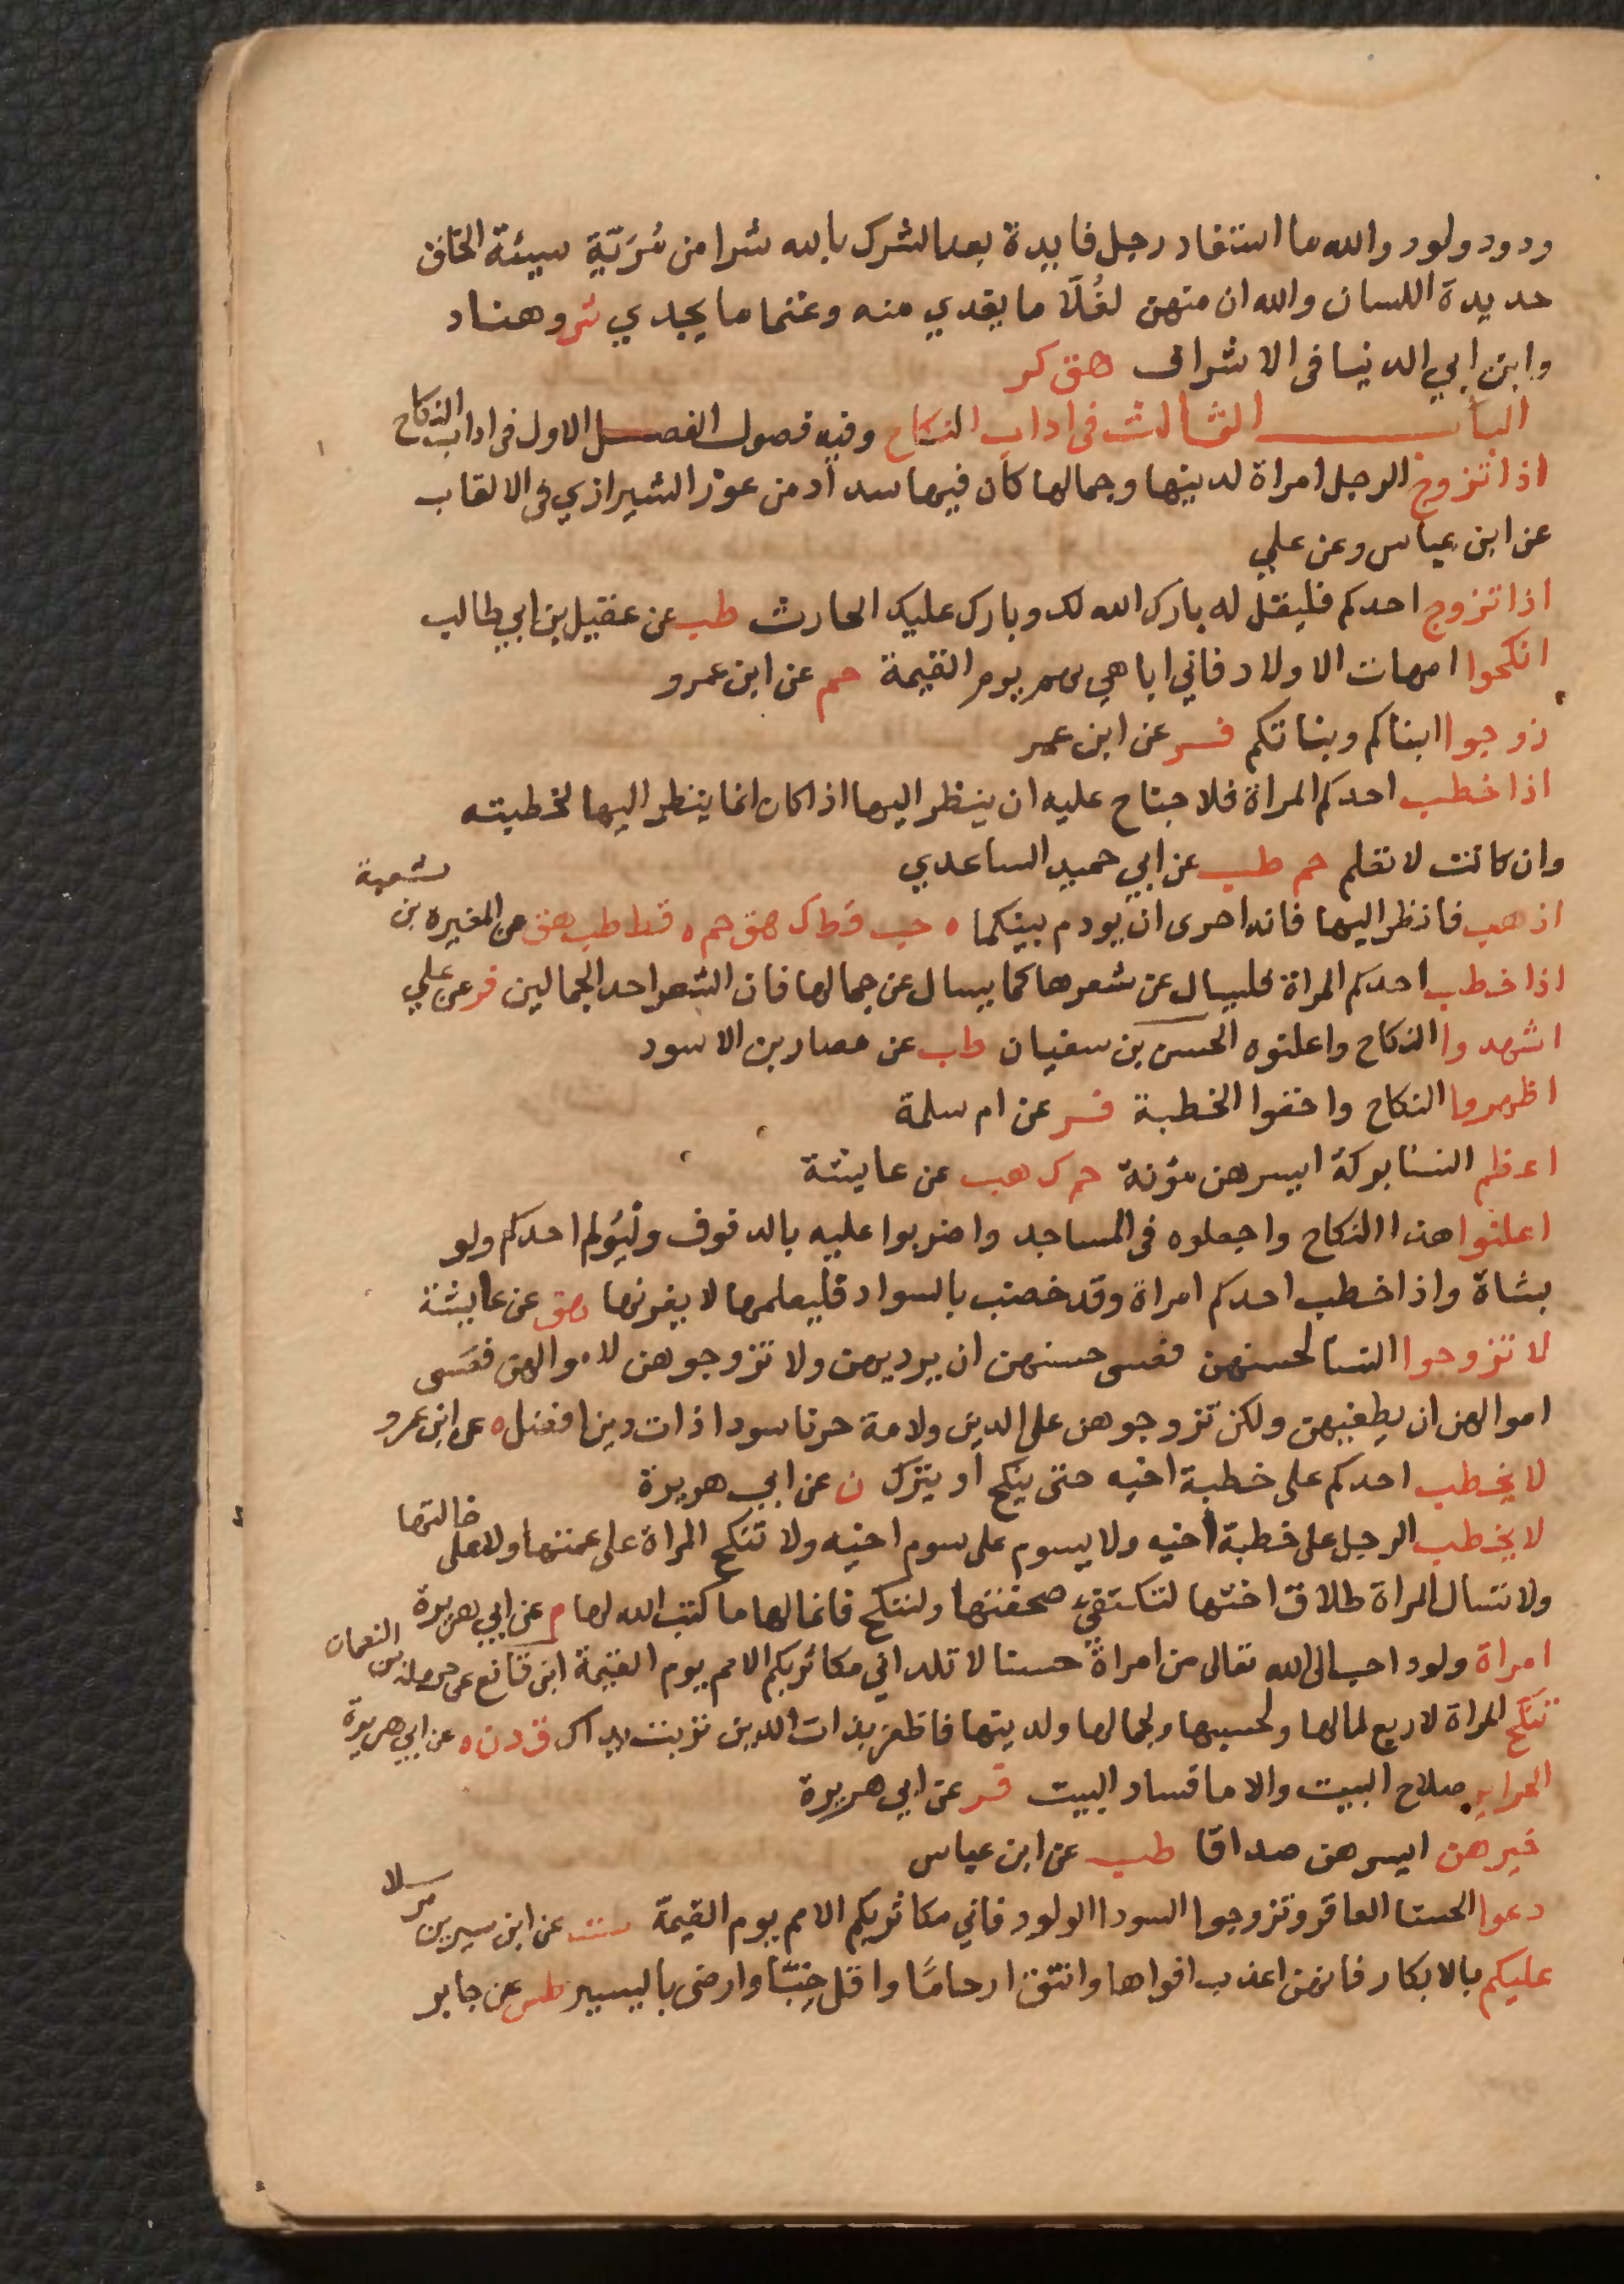 ودود ولود والله ما استفاد رجل فايدة بعد الشرك بالله شرا من مُرَيّةٍ سيئة الخلق
حديدة اللسان والله ان منهن لغُلّا ما يفدي منه وغنما ما يجدي ش وهناد
وابن ابي الدنيا في الاشراف هق كر
الباب الثالث في اداب النكاح وفيه فصول الفصل الاول في اداب النكاح
اذا تزوج الرجل امراة لدينها وجمالها كان فيها سدادمن عوز الشيرازي في الالقاب
عن ابن عباس وعن علي
اذا تزوج احدكم فليقل له بارك الله لك وبارك عليك الحارث طب عن عقيل بن ابي طالب
انكحوا امهات الاولاد فاني اباهي بهم يوم القيمة حم عن ابن عمرو
زوجوا ابناكم وبناتكم فر عن ابن عمر
اذا خطب احدكم المراة فلا جناح عليه ان ينظر اليها اذا كان انما ينظر اليها لخطبته
وان كانت لا تعلم حم طب عن ابي حميد الساعدي
اذهب فانظر اليها فانه احرى ان يودم بينكما ه حب قط ك هق حم ه قط طب هق عن المغيرة بن شعبة
اذا خطب احدكم المراة فليسال عن شعرها كما يسال عن جمالها فان الشعر احد الجمالين فر عن علي
اشهدوا النكاح واعلنوه الحسن بن سفيان طب عن هبار بن الاسود
اظهروا النكاح واخفوا الخطبة فر عن ام سلمة
اعظم النسا بركة ايسرهن مؤنة حم ك هب عن عايشة
اعلنوا هذا النكاح واجعلوه في المساجد واضربوا عليه بالدفوف وليُولم احدكم ولو
بشاة واذا خطب احدكم امراة وقد خضب بالسواد فليعلمها لا يغرنها هق عن عايشة
لا تزوجوا النسا لحسنهن فعسى حسنهن ان يرديهن ولا تزوجوهن لاموالهن فعسى
اموالهن ان يطغيهن ولكن تزوجوهن على الدين ولامة خرما سودا ذات دين افضل ه عن ابن عمرو
لا يخطب احدكم على خطبة اخيه حتى ينكح او يترك ن عن ابي هريرة
لا يخطب الرجل على خطبة اخيه ولا يسوم على سوم اخيه ولا تنكح المراة على عمتها ولا على خالتها
ولا تسال المراة طلاق اختها لتكتفي صحفتها ولتنكح فانما لها ما كتب الله لها م عن ابي هريرة
امراة ولود احب الى الله تعالى من امراة حسنا لا تلد اني مكاثر بكم الامم يوم القيمة ابن قانع عن حرملة بن النعمان
تنكح المراة لاربع لمالها ولحسبها ولجمالها ولدينها فاظفر بذات الدين تربت يداك ق د ن ه عن ابي هريرة
الحراير صلاح البيت والاما فساد البيت فر عن ابي هريرة
خيرهن ايسرهن صداقا طب عن ابن عباس
دعوا الحسنا العاقر وتزوجوا السودا الولود فاني مكاثر بكم الامم يوم القيمة عن ابن سيرين مرسلا
عليكم بالابكار فانهن اعذب افواها وانتق ارحامًا واقل خِبّا وارضى باليسير طس عن جابر